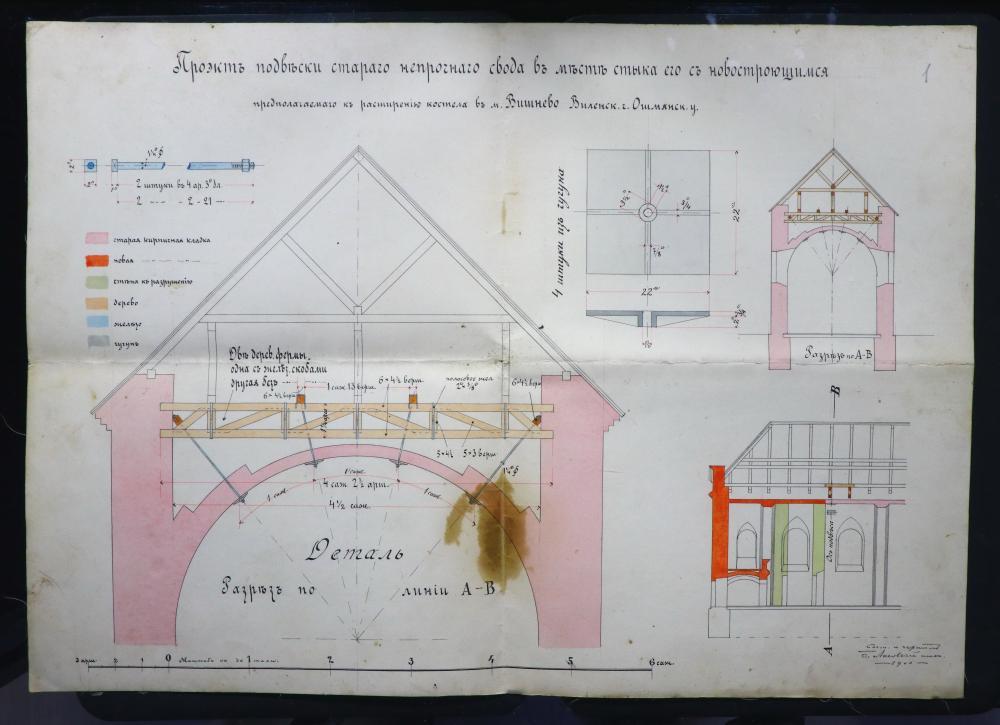 Проэктъ подвѣски стараго непрочнаго свода въ мѣстѣ стыка его съ новостроющимся
предполагаемаго къ расширенію костела въ м. Вишнево Виленск. г. Ошмянск. у.
1
2 штуки въ 4 ар. 3° дл.
2 — — 2-21 — —
старая кирпичная кладка
новая — — — —
стѣна къ разрушенію
дерево
желѣзо
чугунъ
4 штуки изъ чугуна
22"
22"
3/4
7/8
Разрѣзъ по А-В
Двѣ дерев. фермы,
одна съ желѣз. скобами
другая безъ — —
1 саж 13 верш.
6 × 4½ верш.
6 × 4½ верш
полосовое жел.
6×4½ верш
5×4½
5×3 верш
1 саж.
1 саж.
1 саж.
4 саж 2½ арш.
4½ саж.
Деталь
Разрѣзъ по линіи А-В
В
Ось подвѣски
А
3 арш. 2 1 0 1 2 3 4 5 6 саж.